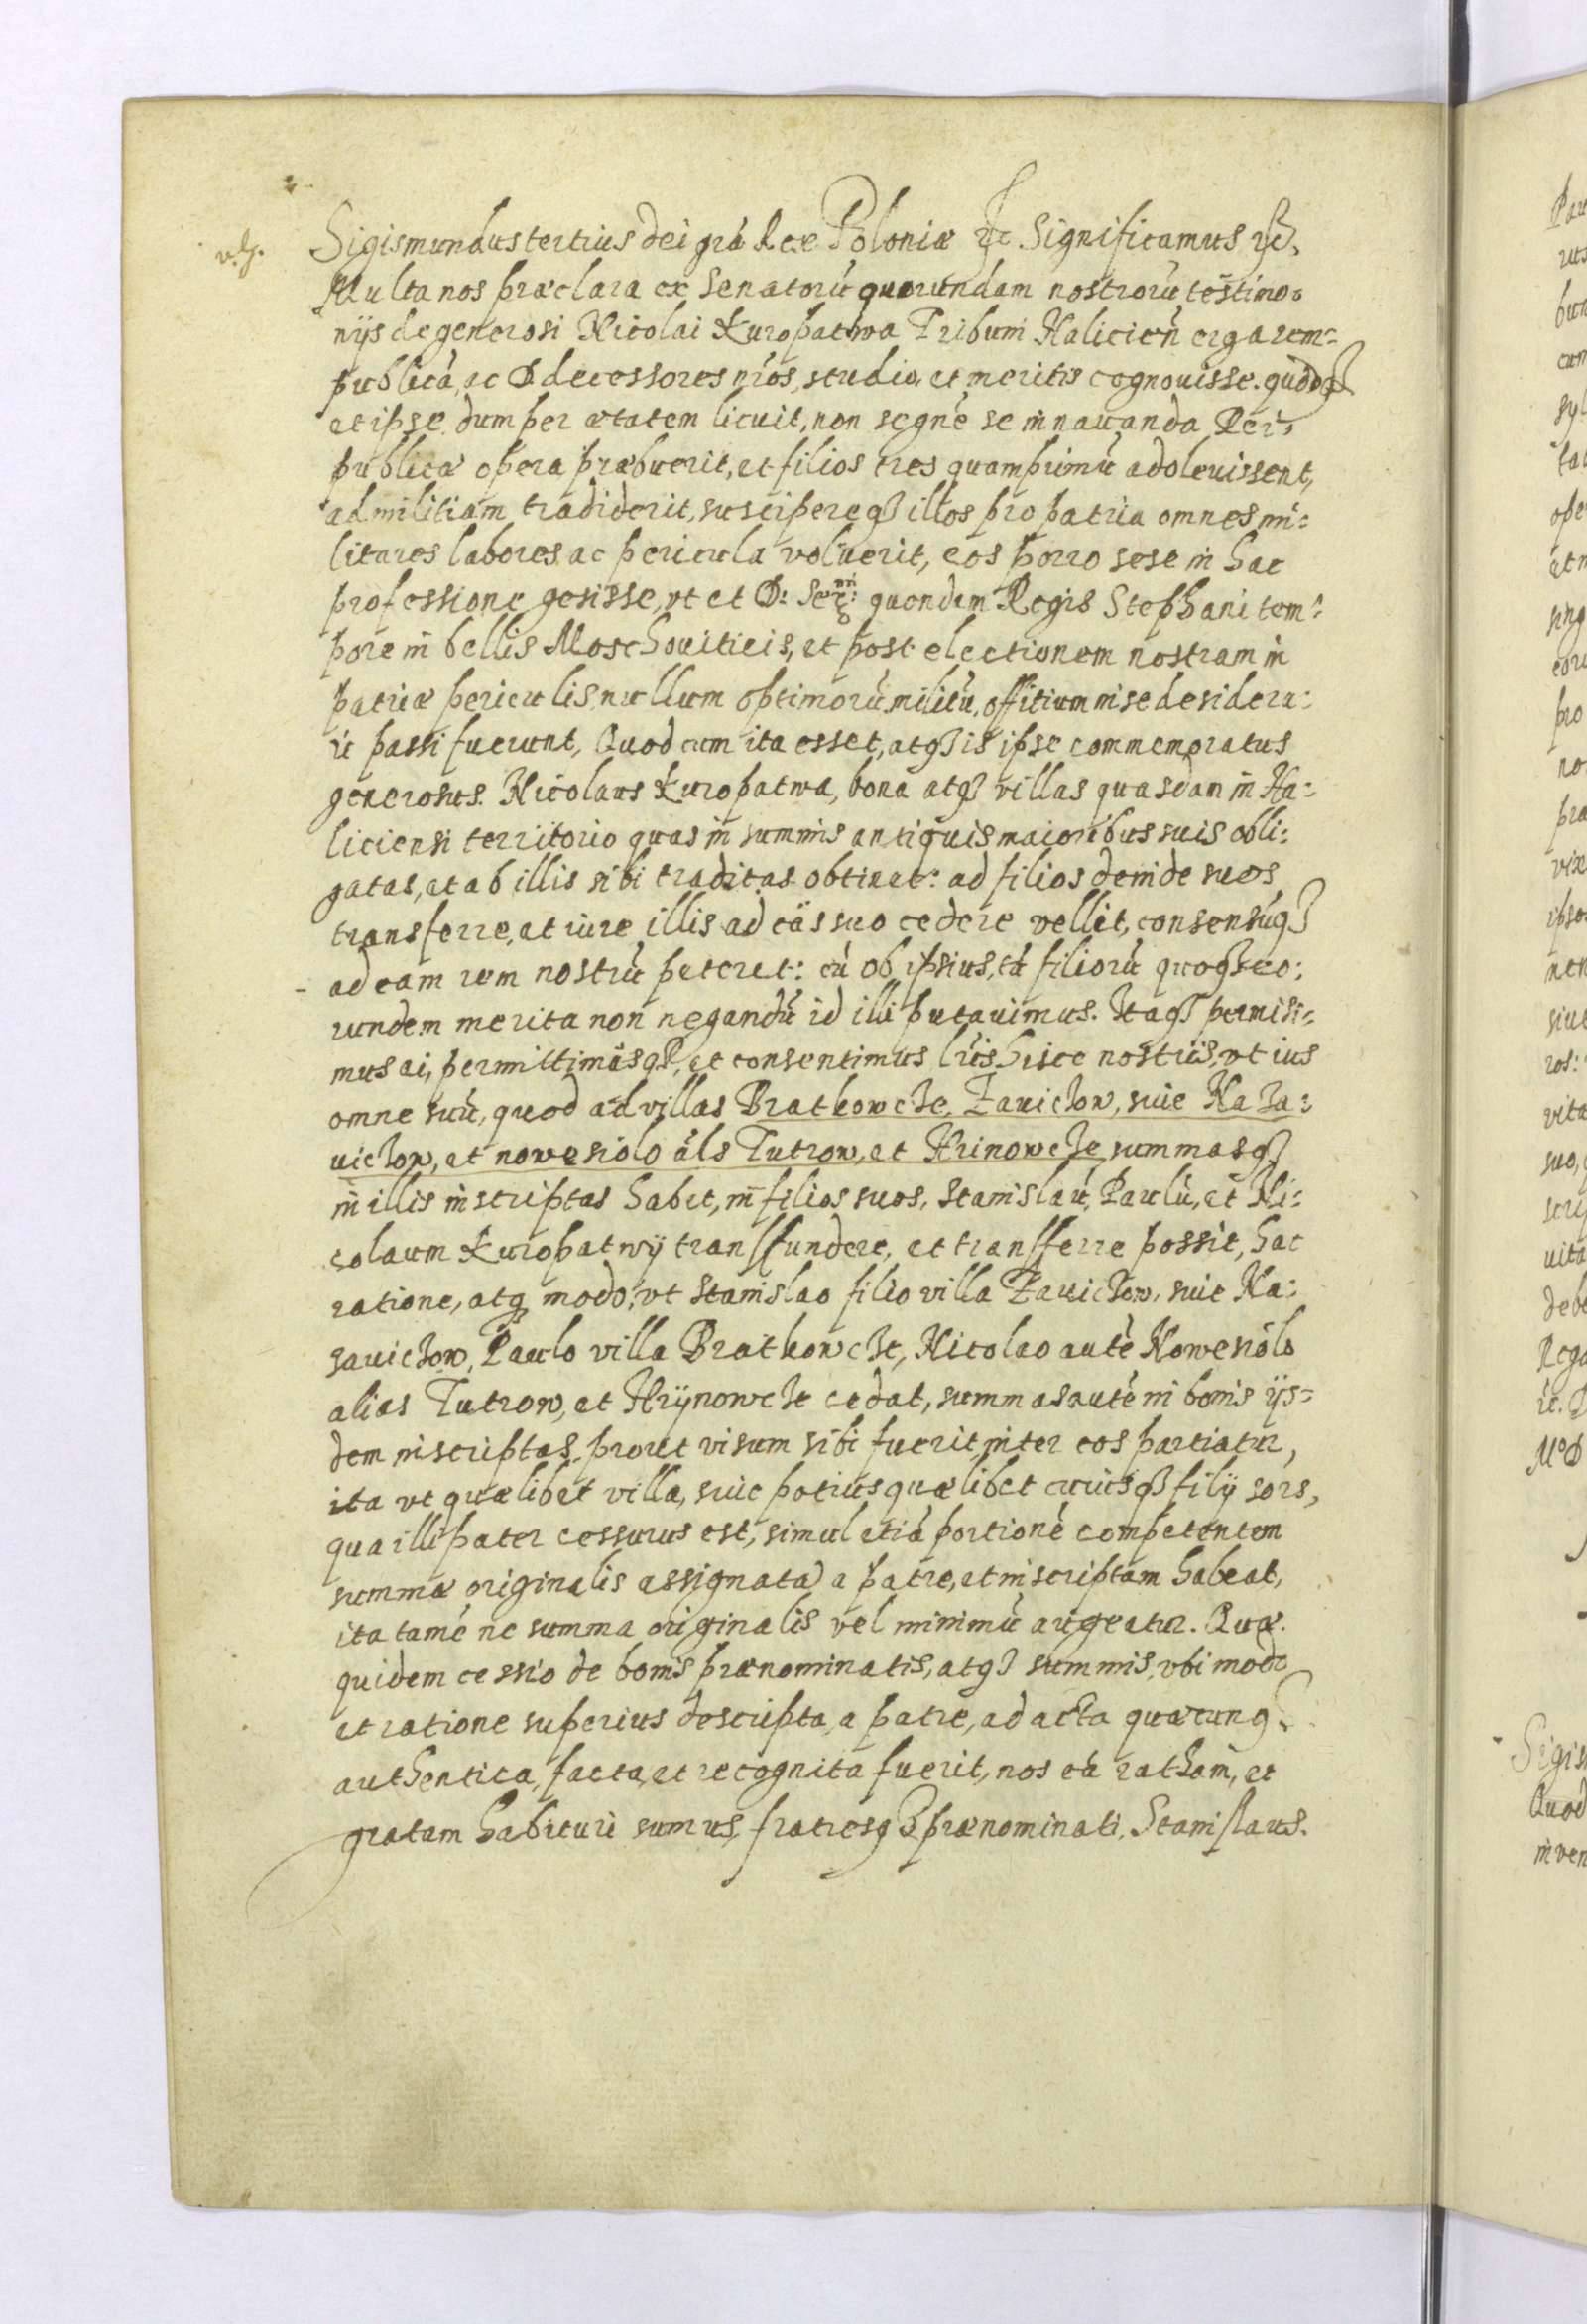 Sigismundus tertius dei grã Rex Poloniæ etc. Significamus etc.
Multa nos præclara ex Senatorũ quorundam nostrorũ testimo-
nijs de generosi Nicolai Kuropatwa Tribuni Halicien̄ erga rem-
publicã, ac Pdecessores nros, studia et meritis cognouisse. quodq3
et ipse dum per ætatem licuit, non segnẽ se in nauanda Rei-
publicæ opera præbuerit, et filios tres quamprimũ adoleuissent,
ad militiam tradiderit, suscipereq3 illos pro patria omnes mi-
litares labores ac pericula voluerit, eos porro sese in hac
professione gesisse, vt et D: Ser: quondam Regis Stephani tem-
pore in bellis Moschouiticis, et post electionem nostram in
patriæ periculis nullum optimorũ militũ, offitium in se desidera-
ri passi fuerunt, Quod cum ita esset, atq3 is ipse commemoratus
generosus. Nicolaus Kuropatwa, bona atq3 villas quasdam in Ha-
liciensi territorio quas in summis antiquis maioribus suis obli-
gatas, et ab illis sibi traditas obtinet: ad filios deinde suos
transferre, et iure illis ad eas suo cedere vellet, consensũq3
ad eam rem nostrũ peteret: cũ ob ipsius, tũ filiorũ quoq3 eo-
rundem merita non negandũ id illi putauimus. Itaq3 permisi-
mus ei, permittimusq3, et consentimus lris hisce nostris, vt ius
omne suũ, quod ad villas Bratkowcze, Zauiczow, siue Naza-
uiczow, et nowesiolo als Tutrow, et Hrinowcze summasq3
in illis inscriptas habet, in filios suos, Stanislaũ, Paulũ, et Ni-
colaum Kuropatwÿ transfundere, et transferre possit, hac
ratione, atq3 modo, vt Stanislao filio villa Zauiczow, siue Na-
zauiczow, Paulo villa Bratkowcze, Nicolao autẽ Nowesiolo
alias Tutrow, et Hrÿnowcze cedat, summas autẽ in bonis ijs-
dem inscriptas, prout visum sibi fuerit, inter eos partiatur,
ita vt quælibet villa, siue potius quælibet cuiusq3 filij sors,
qua illi pater cessurus est, simul etiã portionẽ competentem
summæ originalis assignatã a patre, et inscriptam habeat,
ita tamẽ ne summa originalis vel minimũ augeatur. Quæ
quidem cessio de bonis prænominatis, atq3 summis, vbi modo
et ratione superius descripta, a patre, ad acta quæcunq3
authentica, facta, et recognita fuerit, nos eã ratham, et
gratam habituri sumus, fratresq3 prænominati, Stanislaus.